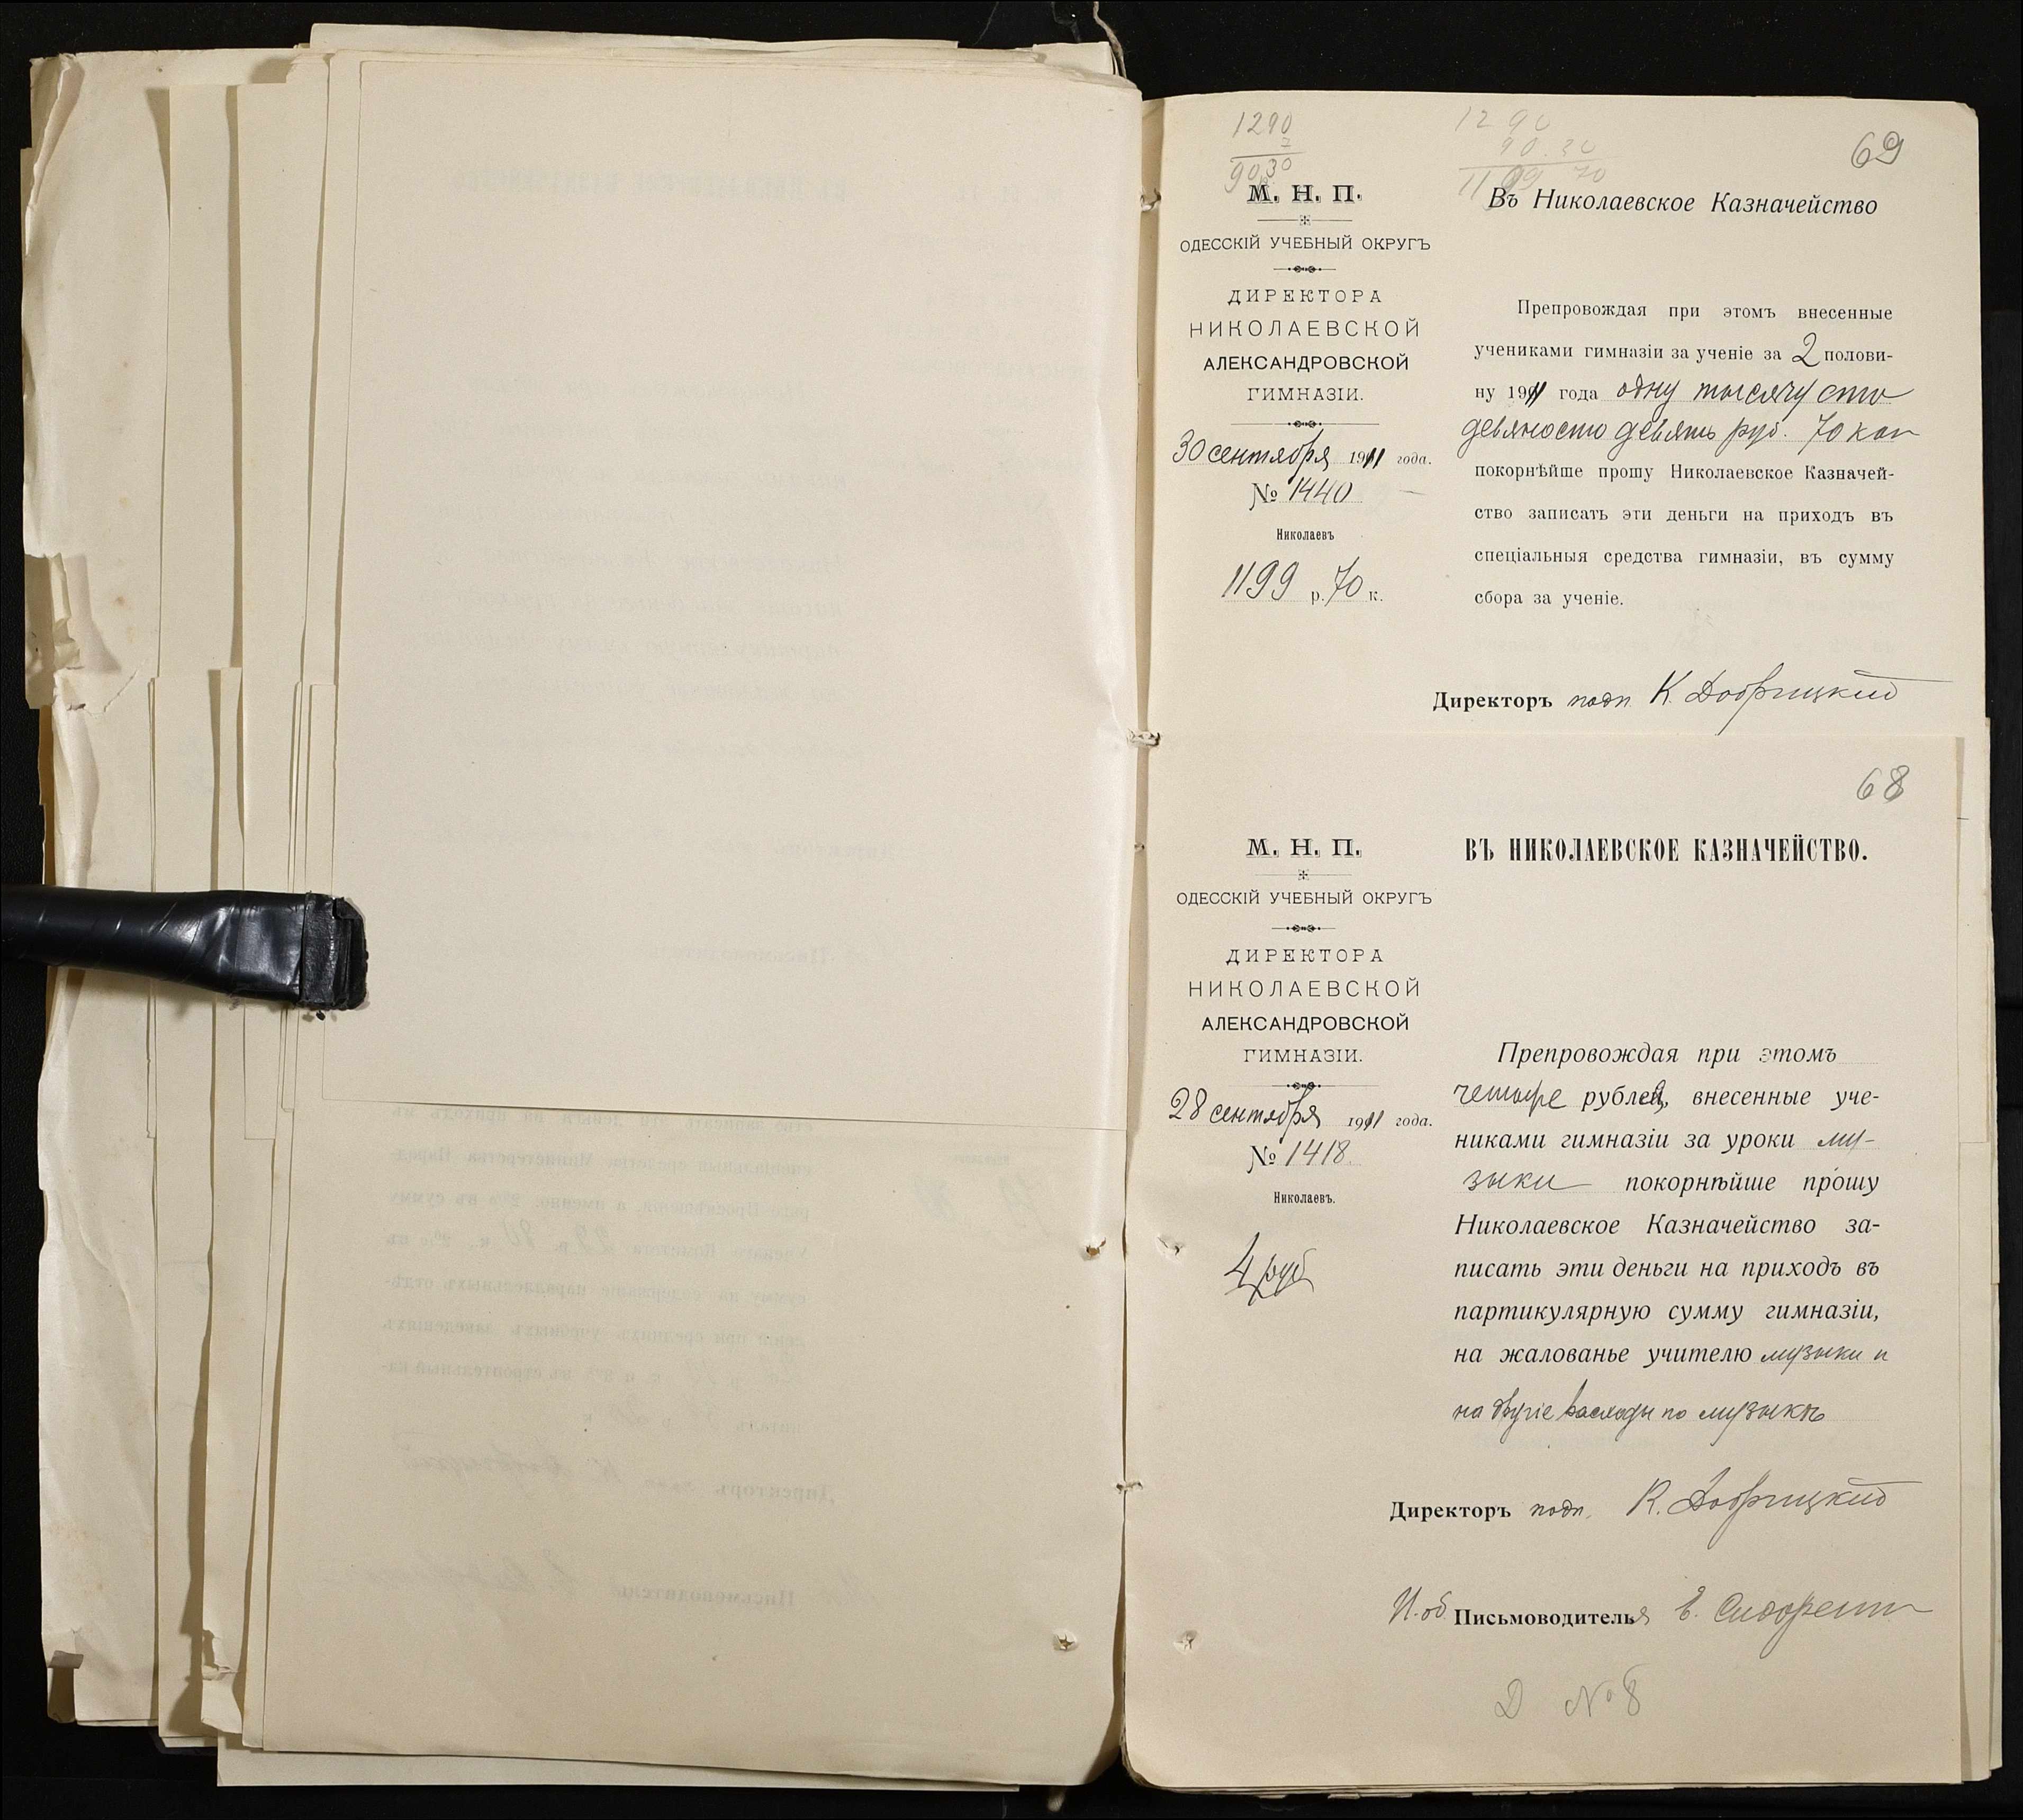 1290
7
90.30
1290
90.30
1199 70
69
М. Н. П.
ОДЕССКІЙ УЧЕБНЫЙ ОКРУГЪ
ДИРЕКТОРА
НИКОЛАЕВСКОЙ
АЛЕКСАНДРОВСКОЙ
ГИМНАЗІИ.
30 сентября 1911 года.
№ 1440
Николаевъ
1199 р. 70 к.
Въ Николаевское Казначейство
Препровождая при этомъ внесенные
учениками гимназіи за ученіе за 2 полови-
ну 1911 года одну тысячу сто
девяносто девять руб. 70 коп
покорнѣйше прошу Николаевское Казначей-
ство записать эти деньги на приходъ въ
спеціальныя средства гимназіи, въ сумму
сбора за ученіе.
Директоръ подп. К. Добрицкий
68
М. Н. П.
ОДЕССКІЙ УЧЕБНЫЙ ОКРУГЪ
ДИРЕКТОРА
НИКОЛАЕВСКОЙ
АЛЕКСАНДРОВСКОЙ
ГИМНАЗІИ.
28 сентября 1911 года.
№ 1418.
Николаевъ.
4 руб
ВЪ НИКОЛАЕВСКОЕ КАЗНАЧЕЙСТВО.
Препровождая при этомъ
четыре рубля, внесенные уче-
никами гимназіи за уроки му-
зыки покорнѣйше прошу
Николаевское Казначейство за-
писать эти деньги на приходъ въ
партикулярную сумму гимназіи,
на жалованье учителю музыки и
на другіе расходы по музыкѣ
Директоръ подп. К. Добрицкий
И. об. Письмоводителя Е.
Д №8